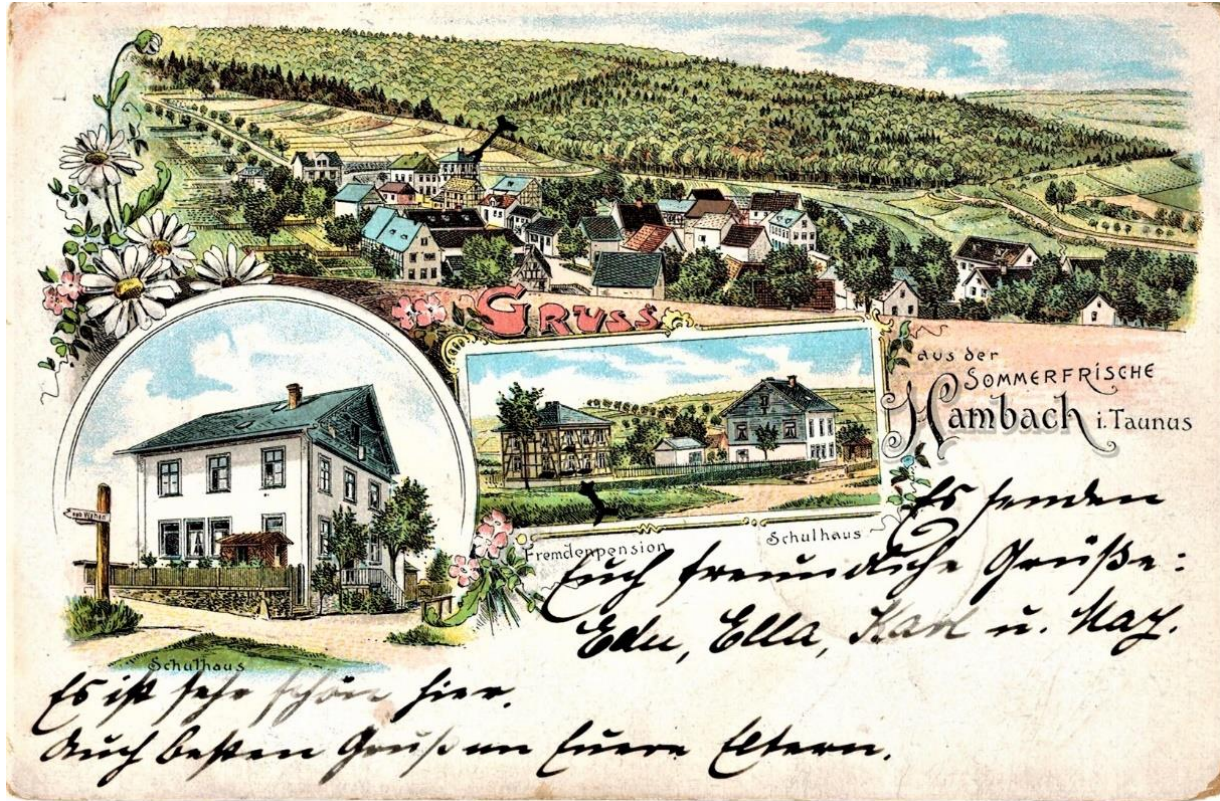 GRUSS
aus der
SOMMERFRISCHE
Hambach i. Taunus
nach Wehen
Fremdenpension
Schulhaus
Schulhaus
Es senden
Euch freundliche Grüße:
Edu, Ella, Karl u. May.
Es ist sehr schön hier.
Auch besten Gruß an Euere Eltern.